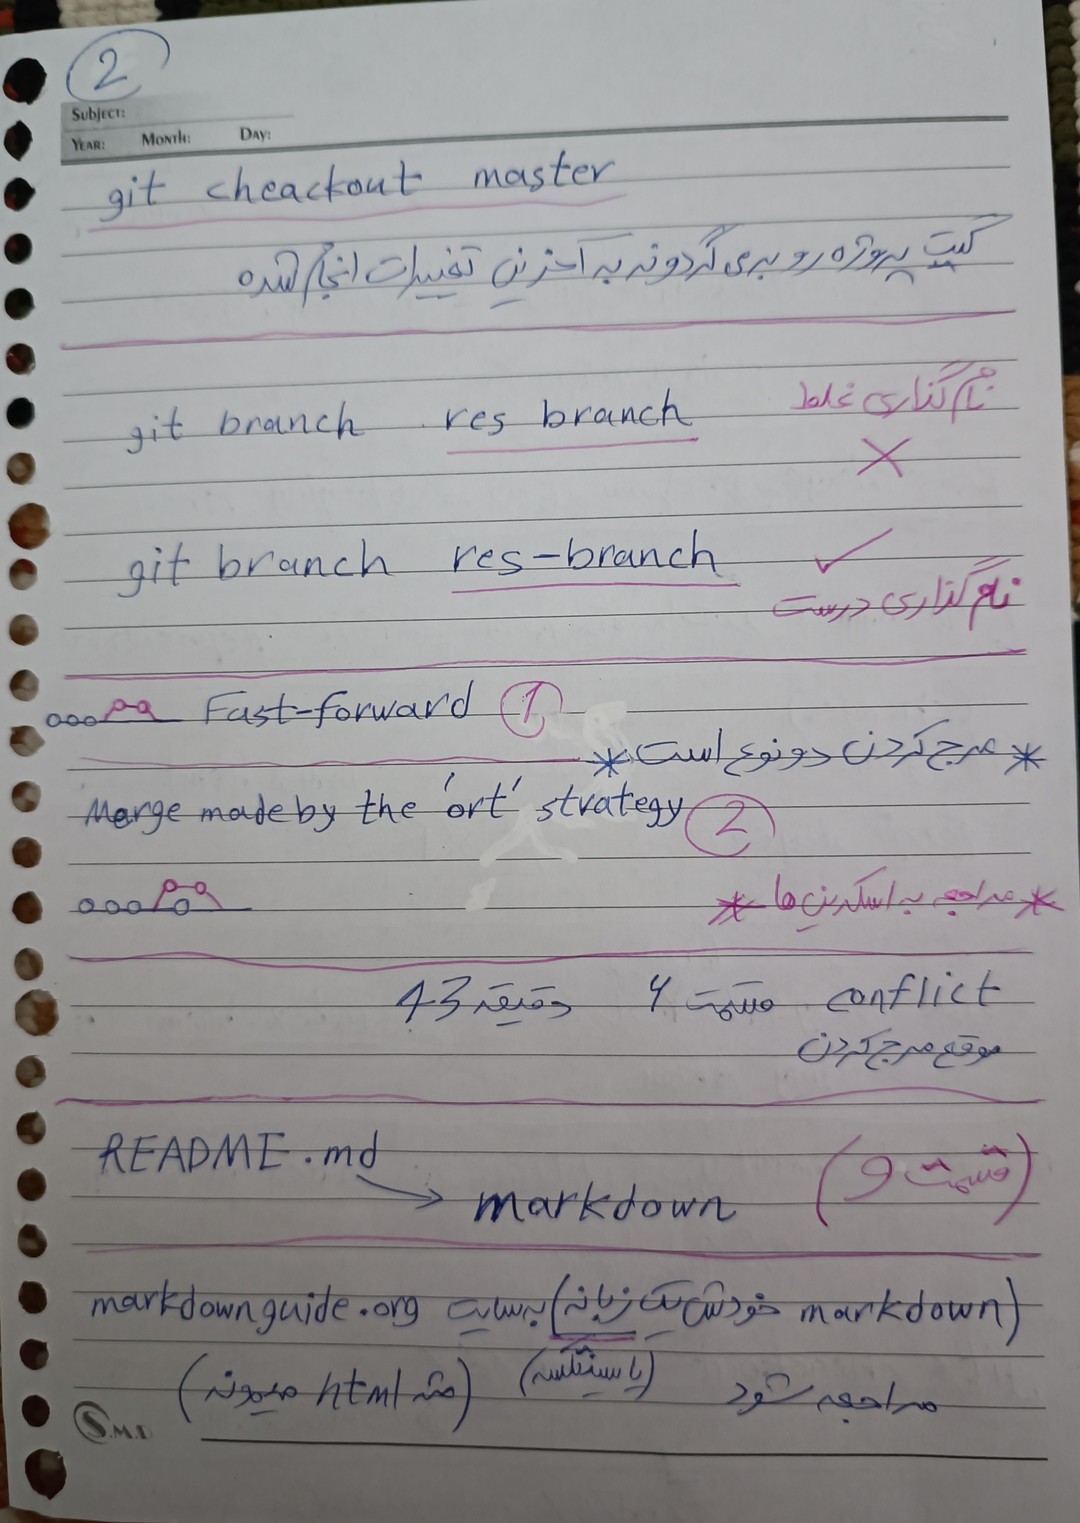 2
Subject:
YEAR: MONTH: DAY:
git cheackout master
گیت پروژه رو برمی گردونه به آخرین تغییرات انجام شده
git branch res branch نام گذاری غلط
git branch res-branch ✓
نام گذاری درست
Fast-forward 1
* مرج کردن دو نوع است *
Merge made by the 'ort' strategy 2
* مراجعه به اسکرین ها *
conflict قسمت 6 دقیقه 43
موقع مرج کردن
README.md (قسمت 9)
→ markdown
(markdown خودش یک زبانه) به سایت markdownguide.org
مراجعه شود (یا سینتکسه) (مثه html میمونه)
S.M.D